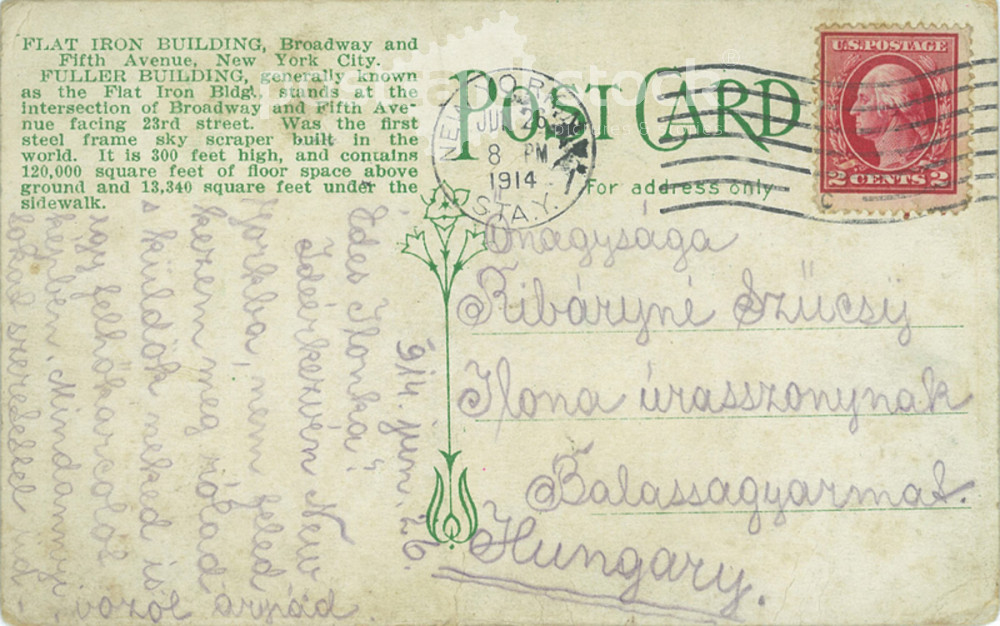 FLAT IRON BUILDING, Broadway and
Fifth Avenue, New York City.
FULLER BUILDING, generally known
as the Flat Iron Bldg., stands at the
intersection of Broadway and Fifth Ave-
nue facing 23rd street. Was the first
steel frame sky scraper built in the
world. It is 300 feet high, and contains
120,000 square feet of floor space above
ground and 13,340 square feet under the
sidewalk.
POST CARD
For address only
NEW YORK
JUN 26
8 PM
1914
STA. Y.
U.S. POSTAGE
2 CENTS 2
914. jun. 26.
Édes Ilonka!
Ideérkezvén New
Yorkba, nem feled
kezem meg rólad
s küldök neked is
egy felhőkarcolót
képben. Mindannyi
tokat szeretettel üd-
vözöl Árpád
Önagysága
Ribáryné Szűcsy
Ilona úrasszonynak
Balassagyarmat.
Hungary.